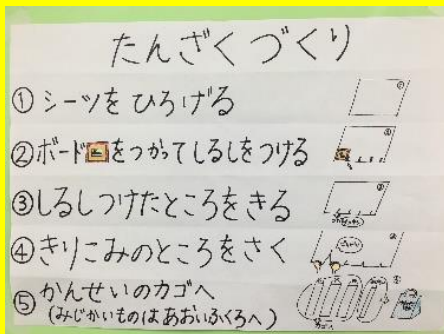 たんざくづくり
①シーツをひろげる
②ボードをつかってしるしをつける
③しるしつけたところをきる
④きりこみのところをさく
⑤かんせいのカゴへ
(みじかいものはあおいふくろへ)